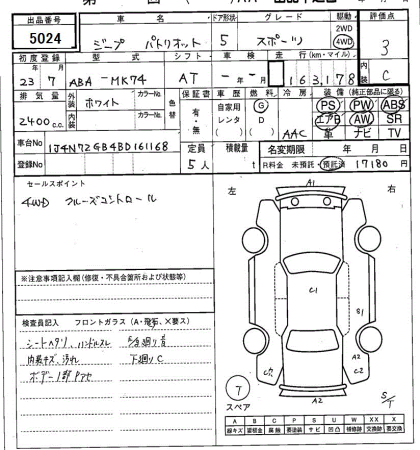 出品番号 車名 ドア形状 グレード 駆動 評価点
5024 ジープ パトリオット 5 スポーツ 2WD 4WD 3
初度登録 型式 シフト 車検 走行(km・マイル) 内装
23年 7月 ABA-MK74 AT -年-月 163,178 C
排気量 外装 カラーNo. 色替 保証書 車歴 燃料 冷房 装備(純正部品に限る)
2400c.c. ホワイト 有・無 自家用 レンタ G D AAC PS PW ABS
内装 カラーNo. エアB AW SR
革 ナビ TV
車台No 1J4N72GB4BD161168 定員 積載量 名変期限 年 月 日
登録No 5人 t R料金 未預託・預託済 17180円
セールスポイント
4WD クルーズコントロール
左 右
A1
C1
S1
A2
C2
A2
※注意事項記入欄(修復・不具合箇所および状態等)
検査員記入 フロントガラス(A・飛石、X要ス)
シートヘタリ、ハンドルスレ
内装キズ、汚れ 下廻りC
T
スペア
A B C P S U W X XX
線キズ 要塗装 サビ 凹凸 補修跡 要交換 交換済